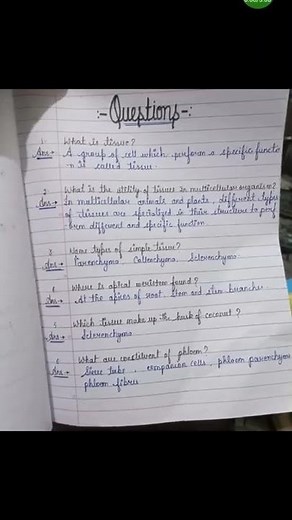 :- Questions -:
1. What is tissue?
Ans→ A group of cell which perform a specific functio
n is called tissue.
2. What is the utility of tissue in multicellular organism?
Ans→ In multicellular animals and plants, different types
of tissues are specialized in their structure to perf
orm different and specific function.
3. Name types of simple tissue?
Ans→ Parenchyma, Collenchyma, Sclerenchyma.
4. Where is apical meristem found?
Ans→ At the apices of root, stem and stem branches
5. Which tissue make up the husk of coconut?
Ans→ Sclerenchyma
6. What are constituent of phloem?
Ans→ Sieve tube, companion cells, phloem parenchyma
phloem fibres